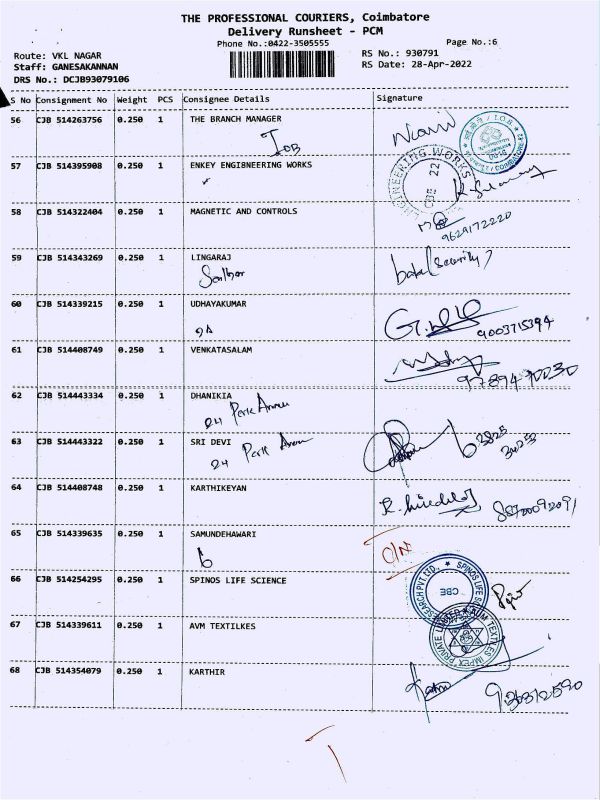 THE PROFESSIONAL COURIERS, Coimbatore
Delivery Runsheet - PCM
Phone No.:0422-3505555
Page No.:6
Route: VKL NAGAR
RS No.: 930791
Staff: GANESAKANNAN
RS Date: 28-Apr-2022
DRS No.: DCJB93079106
S No Consignment No Weight PCS Consignee Details Signature
56 CJB 514263756 0.250 1 THE BRANCH MANAGER
IOB
57 CJB 514395908 0.250 1 ENKEY ENGIBNEERING WORKS
ENGINEERING WORKS
CBE 22
58 CJB 514322404 0.250 1 MAGNETIC AND CONTROLS
9629172220
59 CJB 514343269 0.250 1 LINGARAJ
(Security)
60 CJB 514339215 0.250 1 UDHAYAKUMAR
9A
9003715394
61 CJB 514408749 0.250 1 VENKATASALAM
62 CJB 514443334 0.250 1 DHANIKIA
24 Park Avenu
63 CJB 514443322 0.250 1 SRI DEVI
24 Park Aven
64 CJB 514408748 0.250 1 KARTHIKEYAN
65 CJB 514339635 0.250 1 SAMUNDEHAWARI
O/N
66 CJB 514254295 0.250 1 SPINOS LIFE SCIENCE
SPINOS LIFE SCIENCE RESEARCH PVT LTD.,
CBE
67 CJB 514339611 0.250 1 AVM TEXTILKES
AVM TEXTILES IMPEX PRIVATE LIMITED
68 CJB 514354079 0.250 1 KARTHIR